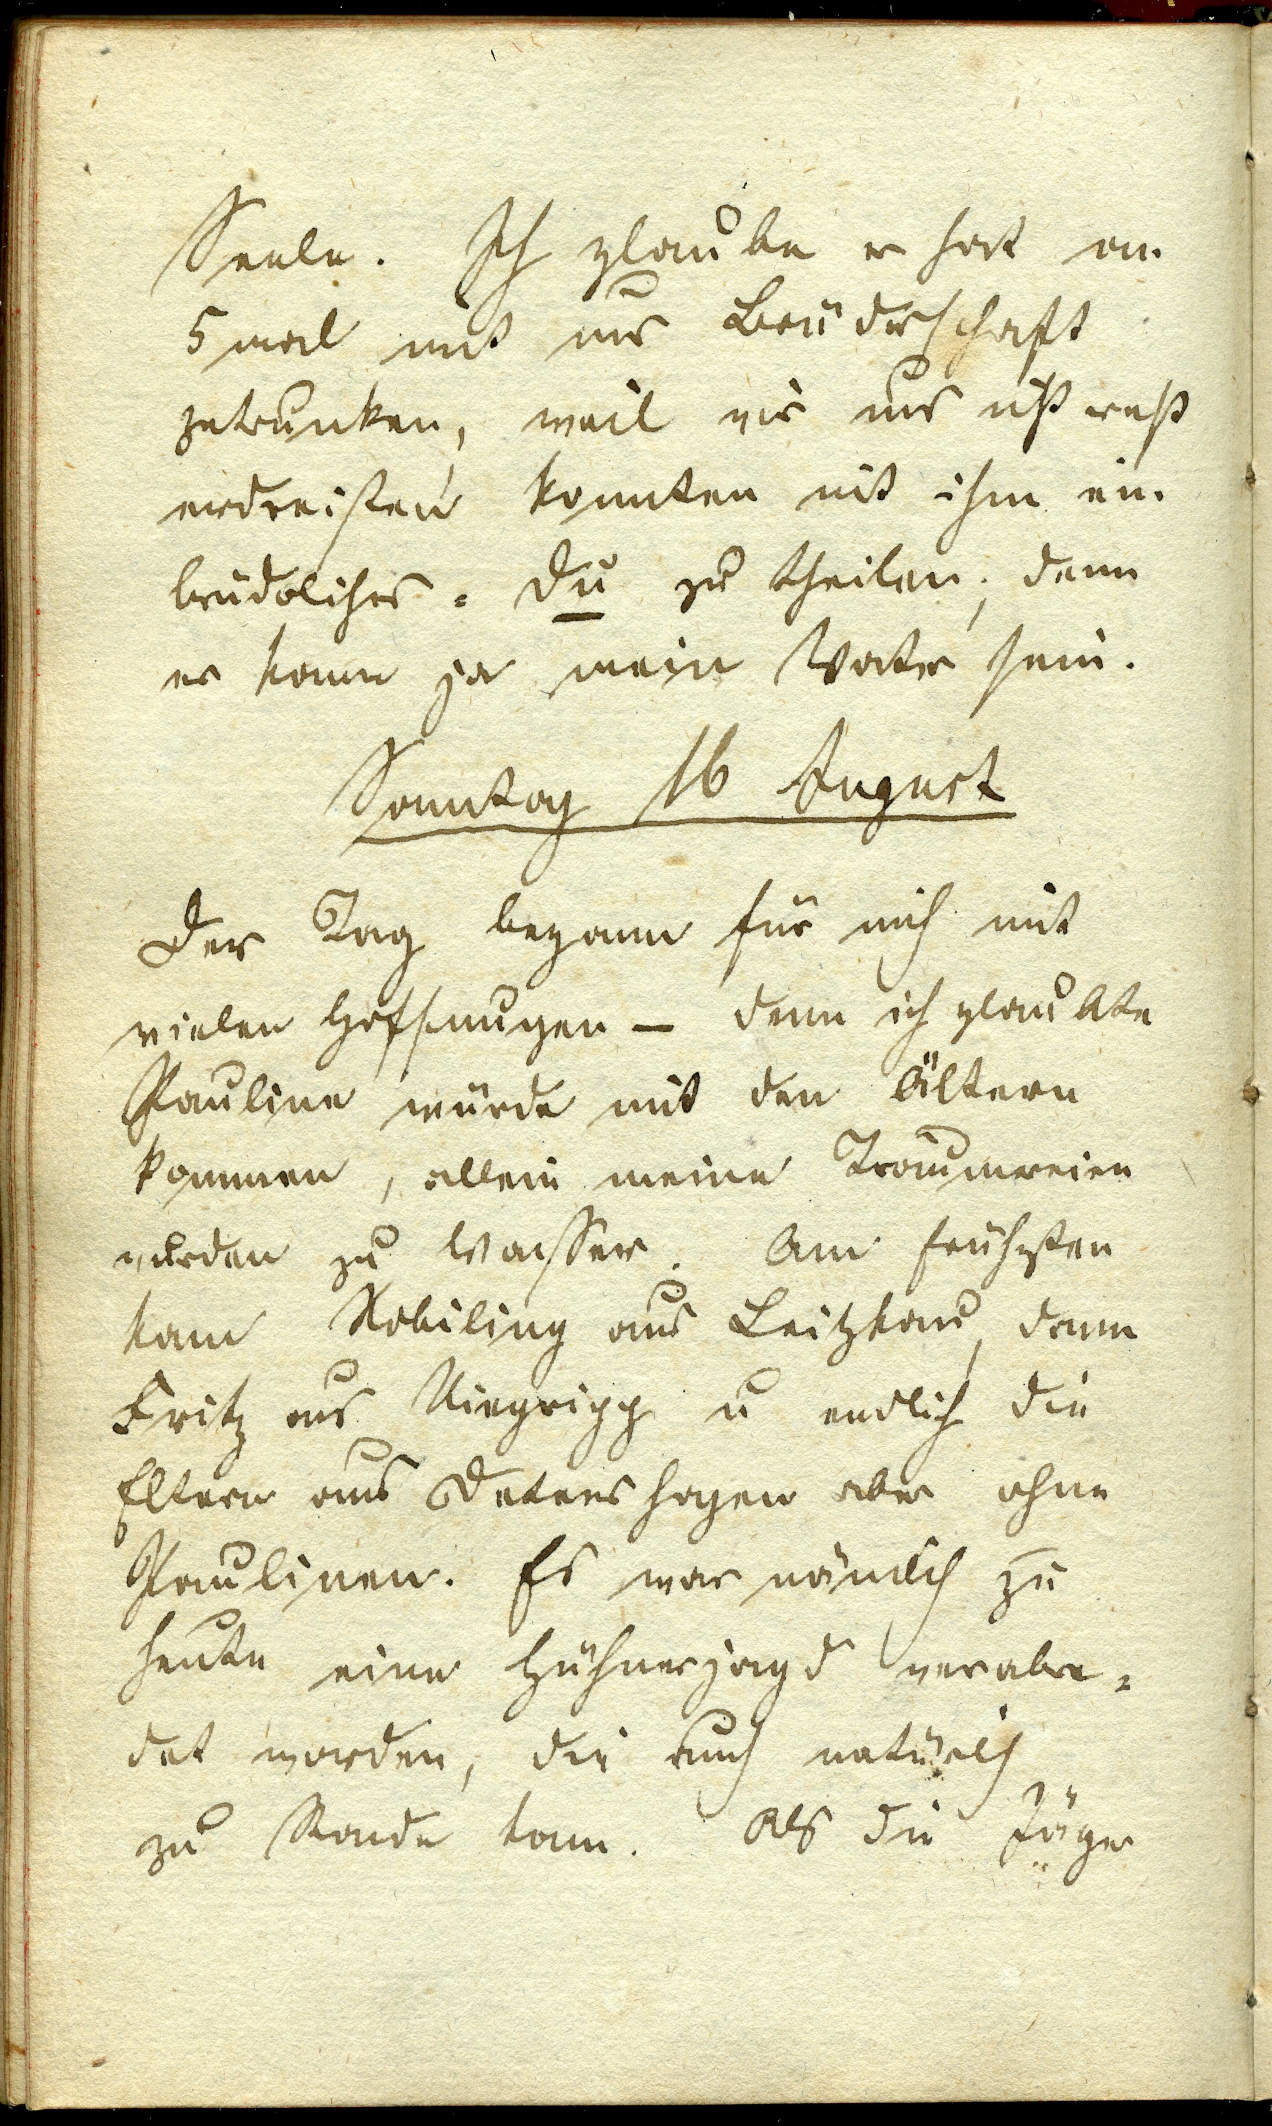 Seele. Ich glaube er hat an
5 mal mit mir Brüderschaft
getrunken, weil wir uns nicht recht
erdreisten konnten mit ihm ein
brüdrliches = Du zu theilen, denn
er kann ja mein Vater sein.
Sonntag 16 August
Der Tag begann für mich mit
vielen Hoffnungen — denn ich glaubte
Pauline würde mit den Ältern
kommen, allein meine Träumereien
wurden zu Wasser. Am frühsten
kam Nobiling aus Leitzkau, dann
Fritz aus Niegripp u endlich die
Eltern aus Detershagen aber ohne
Paulinen. Es war nämlich zu
heute eine Hühnerjagd verabre=
det worden, die auch natürlich
zu Stande kam. Als die Jäger